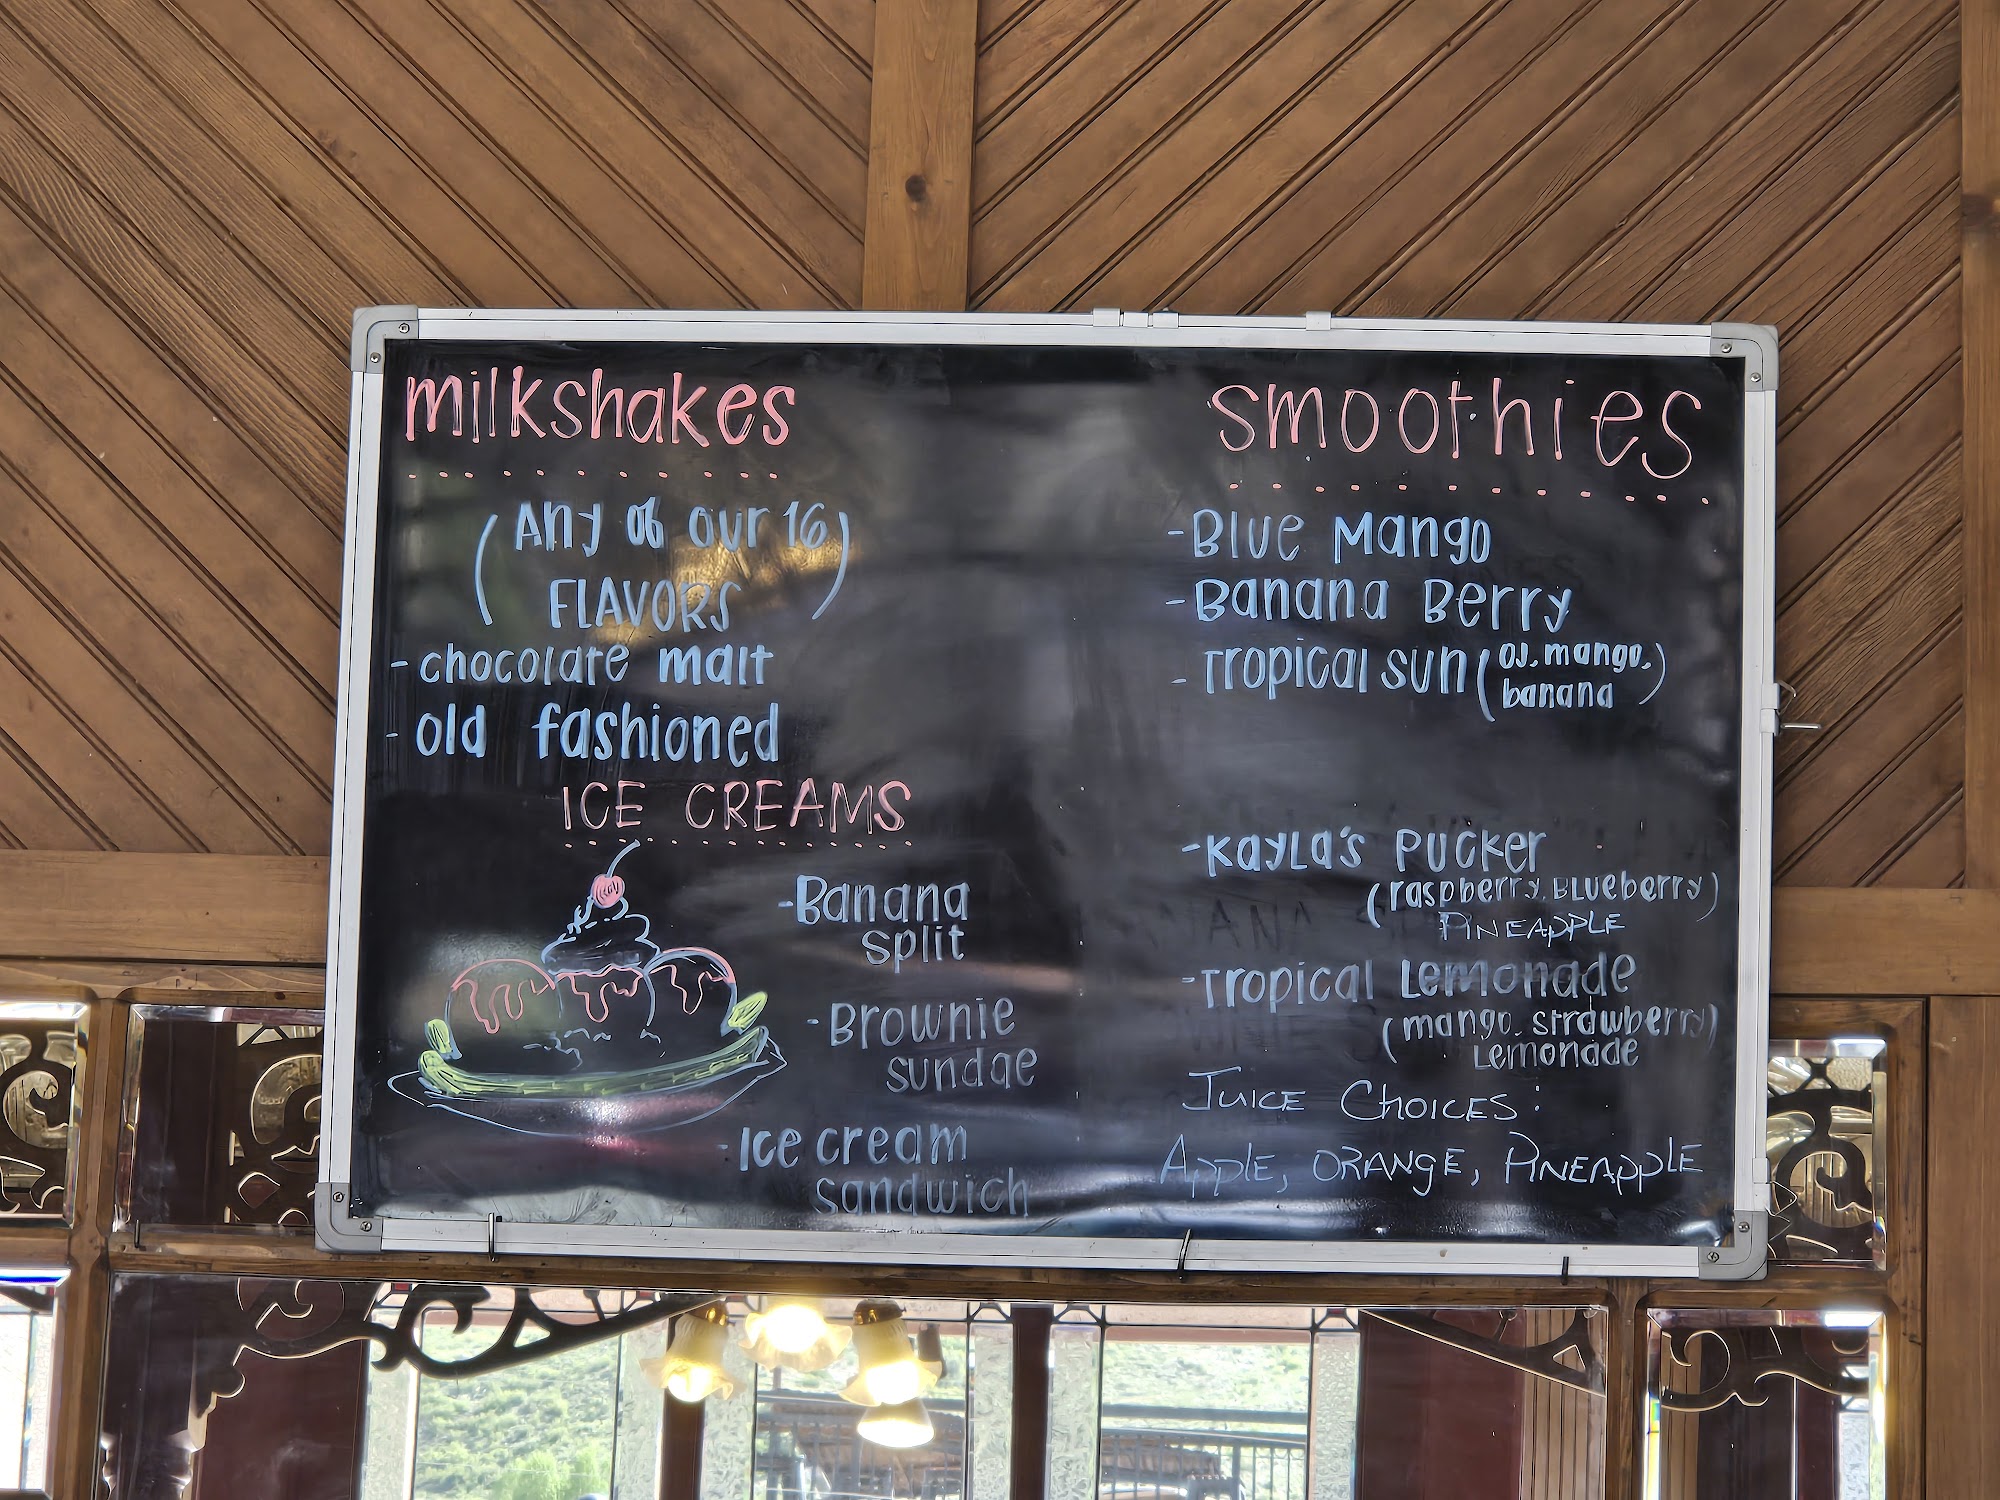 milkshakes
(Any of our 16
FLAVORS)
- chocolate malt
- old fashioned
ICE CREAMS
- Banana
split
- Brownie
sundae
- Ice cream
sandwich
smoothies
- Blue Mango
- Banana Berry
- Tropical sun (OJ, mango,
banana)
- Kayla's Pucker
(raspberry, Blueberry)
PINEAPPLE
- Tropical Lemonade
(mango, strawberry)
Lemonade
JUICE CHOICES:
Apple, ORANGE, PINEAPPLE